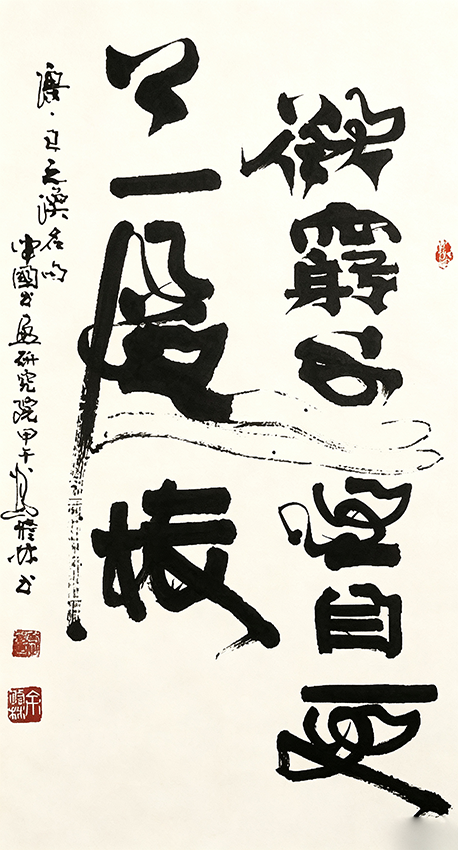 欲窮千里目更
上一層樓
唐·王之渙名句
中國書畫研究院甲午 書